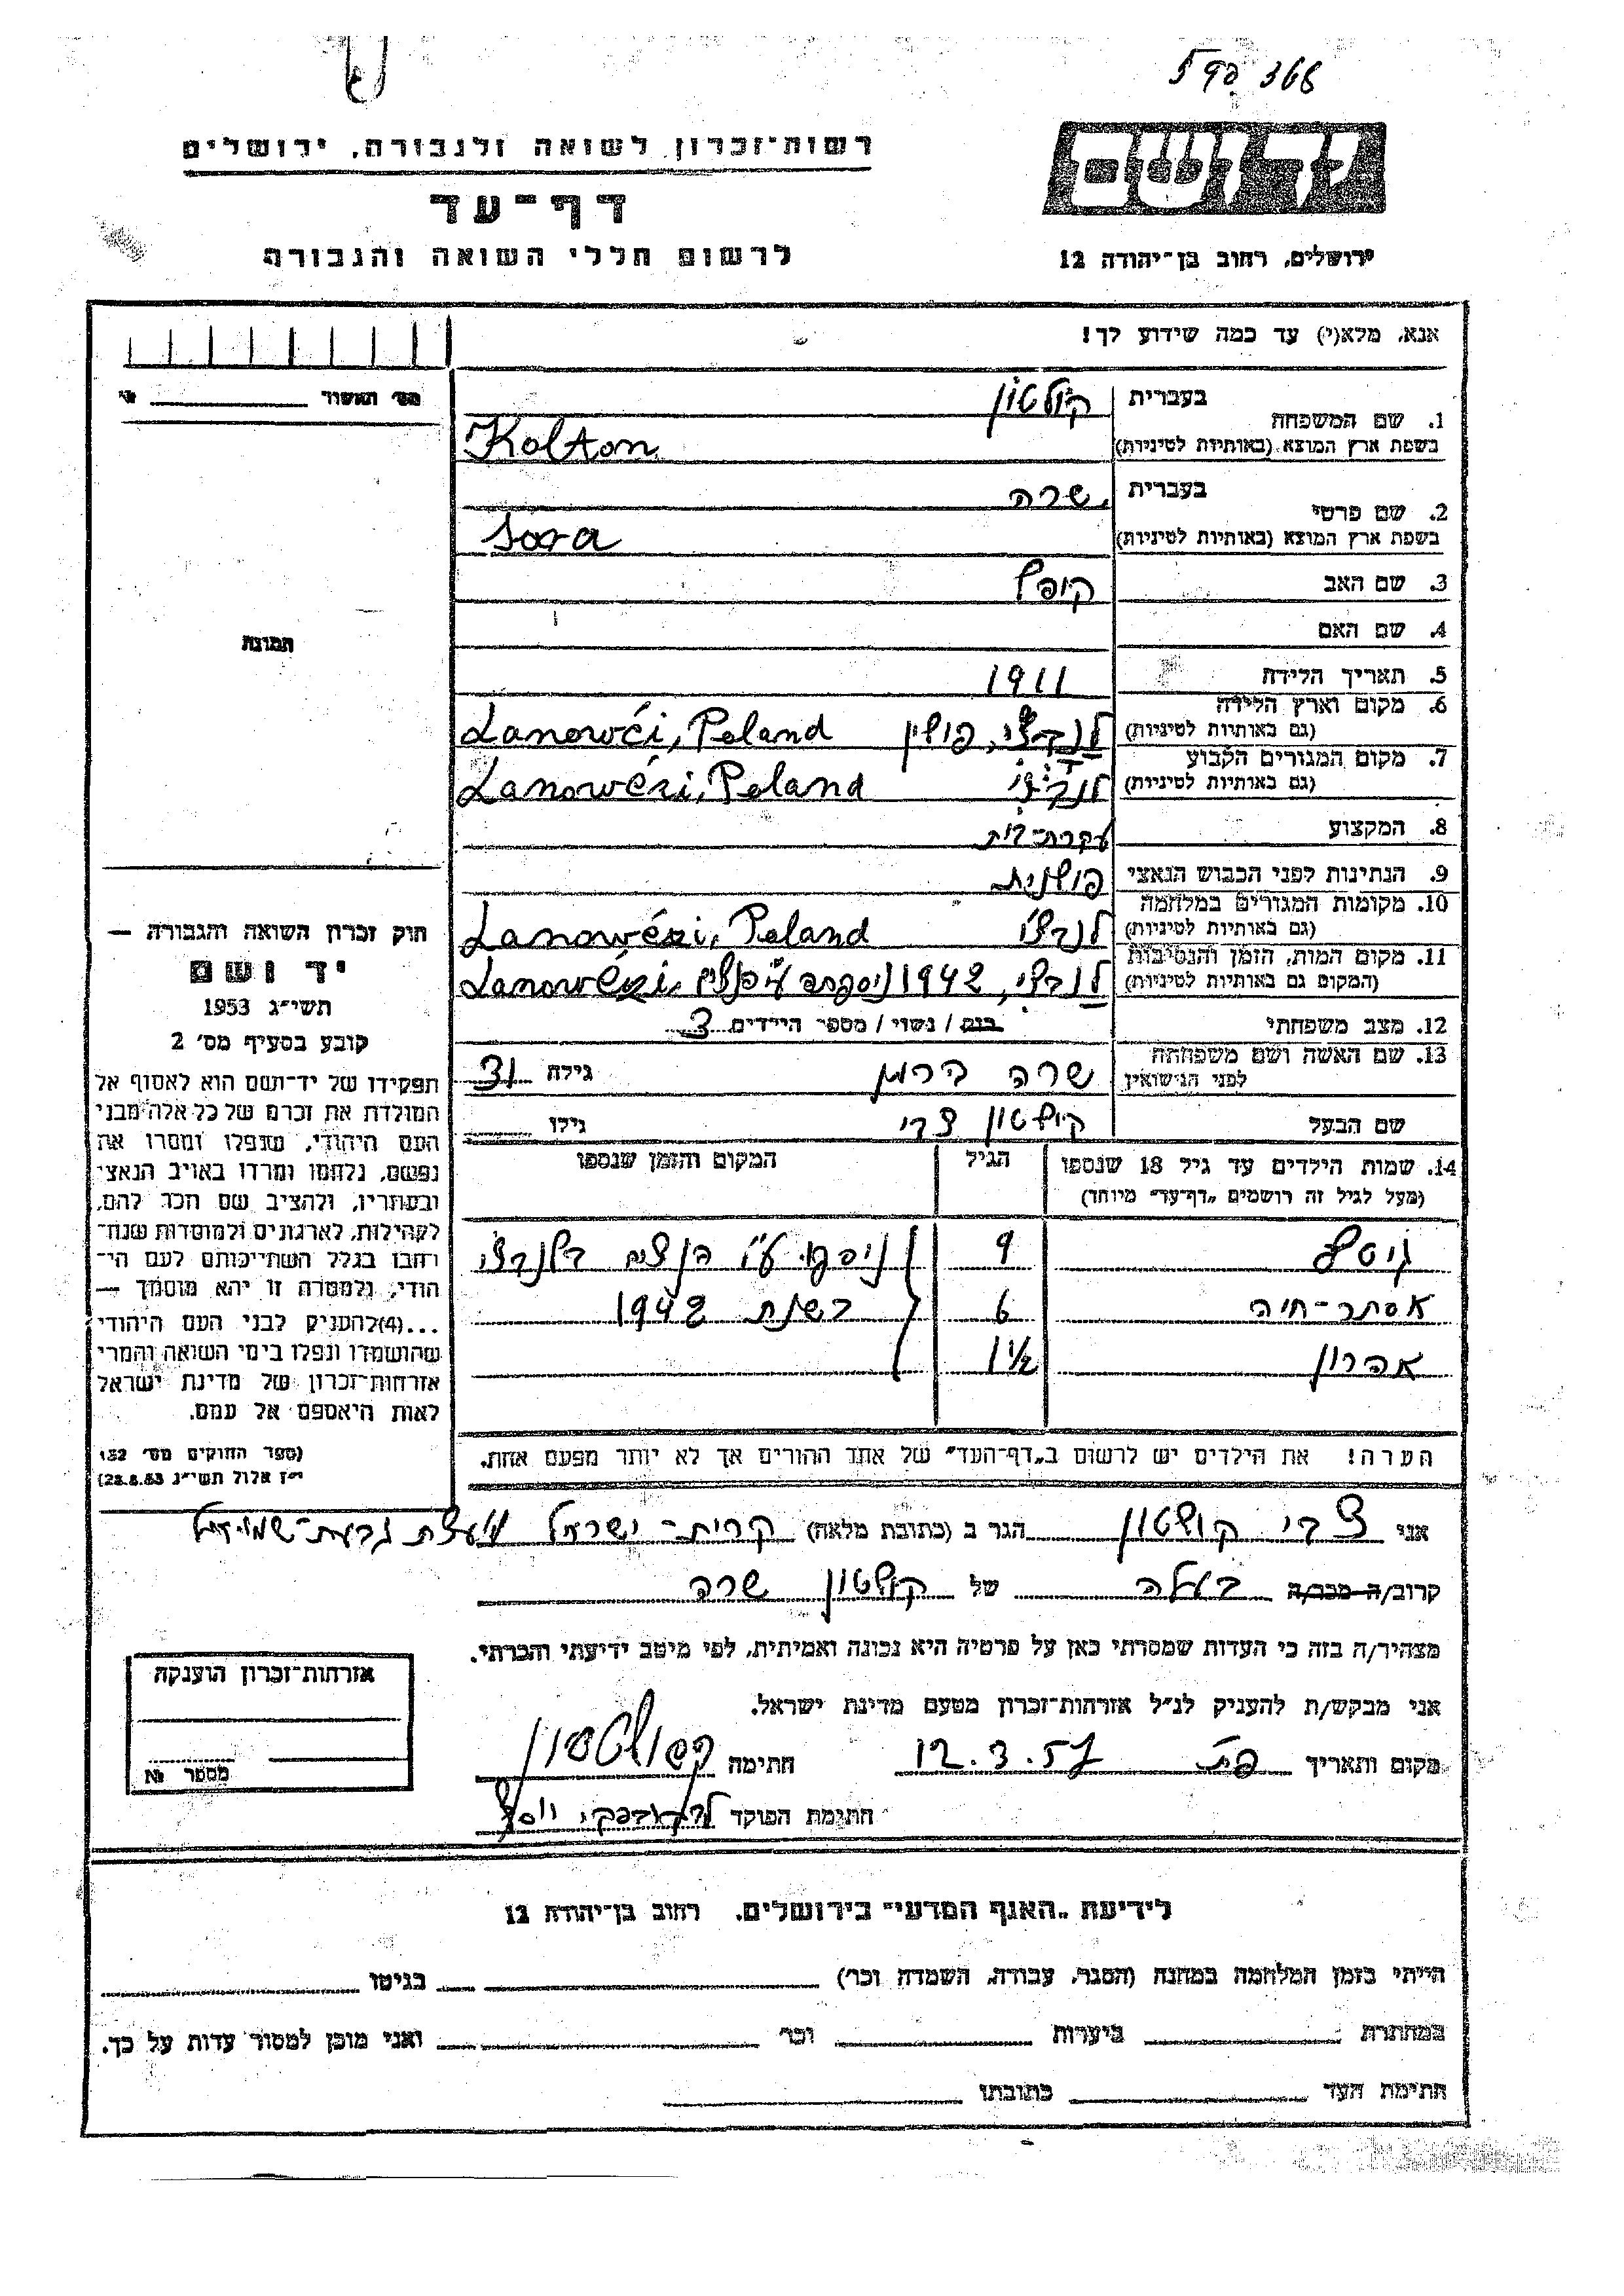 590 368
רשות־זכרון לשואה ולגבורה, ירושלים
דף־עד
לרשום חללי השואה והגבורה
יד ושם
ירושלים, רחוב בן־יהודה 12
אנא, מלא(י) עד כמה שידוע לך!
מס׳ האשור
1. שם המשפחה בעברית קולטון
בשפת ארץ המוצא (באותיות לטיניות) Kolton
2. שם פרטי בעברית שרה
בשפת ארץ המוצא (באותיות לטיניות) Sora
3. שם האב קופל
4. שם האם
5. תאריך הלידה 1911
6. מקום וארץ הלידה (גם באותיות לטיניות) פולין Lanowci, Poland
7. מקום המגורים הקבוע (גם באותיות לטיניות) Lanowczi, Poland
8. המקצוע עקרת־בית
9. הנתינות לפני הכבוש הנאצי פולנית
10. מקומות המגורים במלחמה (גם באותיות לטיניות) לנבצי Lanowczi, Poland
11. מקום המות, הזמן והנסיבות (המקום גם באותיות לטיניות) לנבצי, 1942 Lanowczi
12. מצב משפחתי רווק / נשוי / מספר הילדים 3
13. שם האשה ושם משפחתה לפני הנישואין שרה ברמן גילה 31
שם הבעל קולטון צבי גילו
14. שמות הילדים עד גיל 18 שנספו הגיל המקום והזמן שנספו
(מעל לגיל זה רושמים „דף־עד״ מיוחד)
גיטל 9 ניספו ע״י הנאצים בלנבצי
אסתר־חיה 6 בשנת 1942
אהרון 1½
הערה! את הילדים יש לרשום ב„דף־העד״ של אחד ההורים אך לא יותר מפעם אחת.
התמונה
חוק זכרון השואה והגבורה —
יד ושם
תשי״ג 1953
קובע בסעיף מס׳ 2
תפקידו של יד־ושם הוא לאסוף אל
המולדת את זכרם של כל אלה מבני
העם היהודי, שנפלו ומסרו את
נפשם, נלחמו ומרדו באויב הנאצי
ובעוזריו, ולהציב שם וזכר להם,
לקהילות, לארגונים ולמוסדות שנח־
רבו בגלל השתייכותם לעם הי־
הודי, ולמטרה זו יהא מוסמך —
...(4)להעניק לבני העם היהודי
שהושמדו ונפלו בימי השואה והמרי
אזרחות־זכרון של מדינת ישראל
לאות היאספם אל עמם.
(ספר החוקים מס׳ 132
י״ז אלול תשי״ג 28.8.53)
אני צבי קולטון הגר ב (כתובת מלאה) קרית־ישראל מועצת גבעת־שמואל
קרוב/ה מכר/ה בעלה של קולטון שרה
מצהיר/ה בזה כי העדות שמסרתי כאן על פרטיה היא נכונה ואמיתית, לפי מיטב ידיעתי והכרתי.
אני מבקש/ת להעניק לנ״ל אזרחות־זכרון מטעם מדינת ישראל.
מקום ותאריך פ״ת 12.3.57 חתימה קולטון
חתימת הפוקד יוסף
אזרחות־זכרון הוענקה
מספר №
לידיעת „האגף המדעי״ בירושלים, רחוב בן־יהודה 12
הייתי בזמן המלחמה במחנה (הסגר, עבודה, השמדה וכו׳) בגיטו
במחתרת ביערות וכו׳ ואני מוכן למסור עדות על כך.
חתימת העד כתובתו